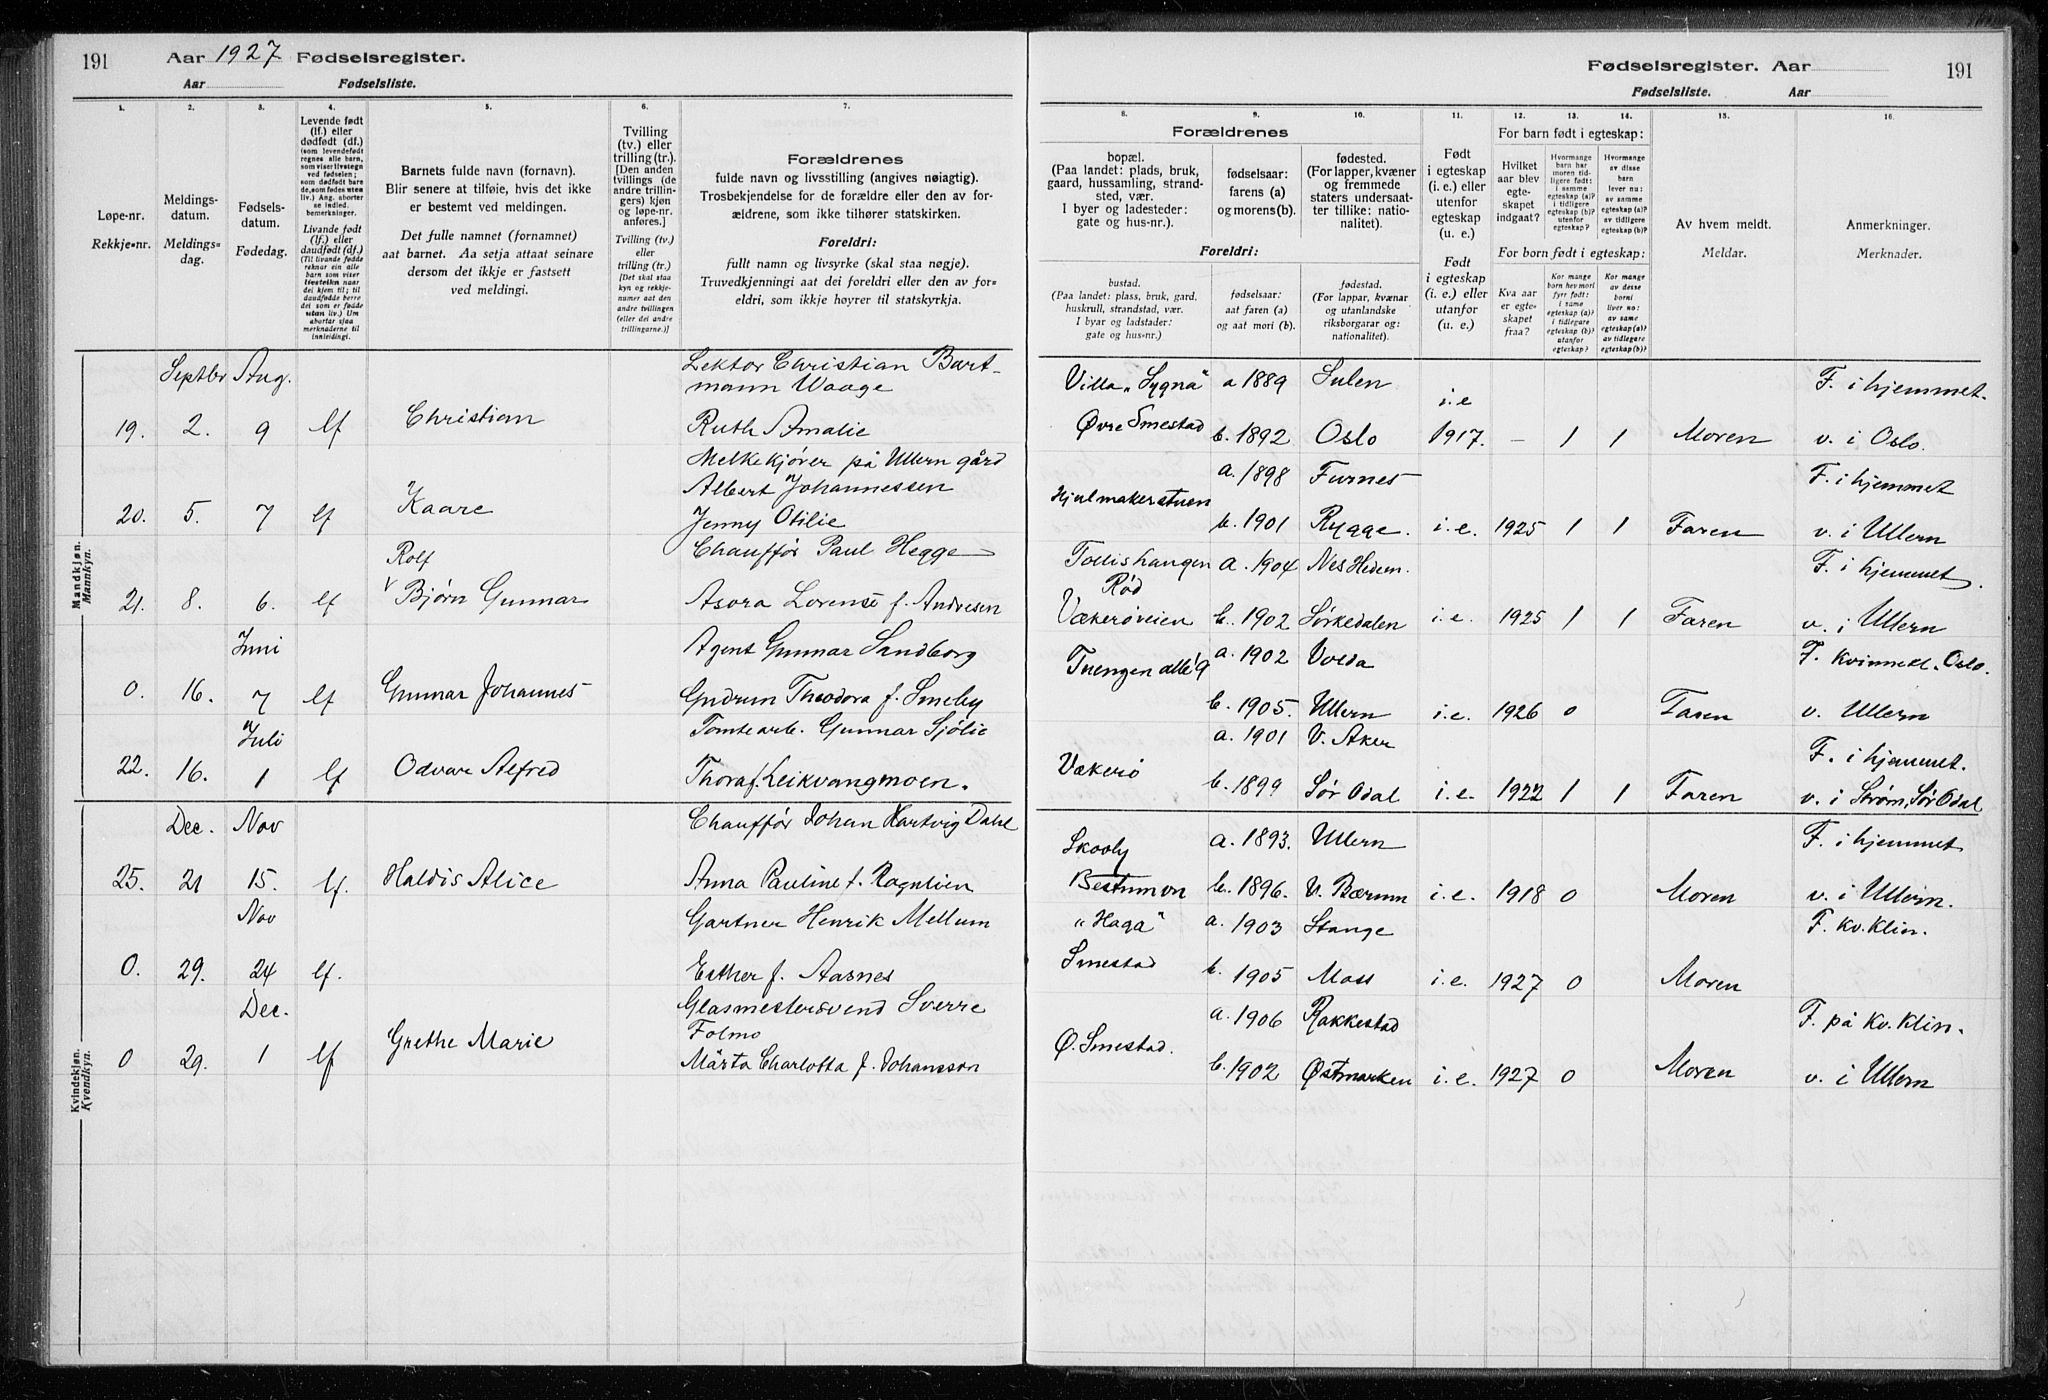 191 Aar 1927 Fødselsregister.
Aar Fødselsliste.
Fødselsregister. Aar 191
Fødselsliste. Aar
1. 2. 3. 4. 5. 6. 7.
Løpe-nr.
Rekkje-nr.
Meldings-
datum.
Meldings-
dag.
Fødsels-
datum.
Fødedag.
Levende født
(lf.) eller
dødfødt (df.)
(som levendefødt
regnes alle barn,
som viser livstegn
ved fødselen;
som dødfødt bare
de, som fødes uten
liv.) Ang. aborter
se indled.
bemerkninger.
Livande født
(lf.) eller
daudfødt (df.)
(Til livande fødde
reknar ein alle
barn som viser
livsteikn naar
dei kjem til; til
daudfødde berre
dei som er fødde
utan liv.) Um
abortar sjaa
merknaderne til
innleidingi.
Barnets fulde navn (fornavn).
Blir senere at tilføie, hvis det ikke
er bestemt ved meldingen.
Det fulle namnet (fornamnet)
aat barnet. Aa setja attaat seinare
dersom det ikkje er fastsett
ved meldingi.
Tvilling
(tv.) eller
trilling (tr.).
[Den anden
tvillings (de
andre trillin-
gers) kjøn
og løpe-nr.
anføres.]
Tvilling (tv.)
eller
trilling (tr.)
[Det skal staa
kyn og rekkje-
numer aat den
andre tvillingen
(eller dei andre
trillingarne.)]
Forældrenes
fulde navn og livsstilling (angives nøiagtig).
Trosbekjendelse for de forældre eller den av for-
ældrene, som ikke tilhører statskirken.
Foreldri:
fullt namn og livsyrke (skal staa nøgje).
Truvedkjenningi aat dei foreldri eller den av for-
eldri, som ikkje høyrer til statskyrkja.
8. 9. 10. 11. 12. 13. 14. 15. 16.
Forældrenes
bopæl.
(Paa landet: plads, bruk,
gaard, hussamling, strand-
sted, vær.
I byer og ladesteder:
gate og hus-nr.).
fødselsaar:
farens (a)
og morens (b).
fødested.
(For lapper, kvæner
og fremmede
staters undersaat-
ter tillike: natio-
nalitet).
Foreldri:
bustad.
(Paa landet: plass, bruk, gard,
huskrull, strandstad, vær.
I byar og ladstader:
gate og hus-nr.)
fødselsaar:
aat faren (a)
og aat mori (b).
fødestad.
(For lappar, kvænar
og utanlandske
riksborgarar og:
nationalitet).
Født
i egteskap
(i. e.) eller
utenfor
egteskap
(u. e.)
Født
i egteskap
(i. e.) eller
utanfor
(u. e.)
For barn født i egteskap:
Hvilket
aar blev
egte-
skapet
indgaat?
Hvormange
barn har
moren tid-
ligere født:
i samme
egteskap (a)?
i tidligere
egteskap (b)?
utenfor
egteskap?
Hvormange
av disse
barn
lever nu:
av samme
egteskap (a)?
av tidligere
egteskap (b)?
For barn født i egteskap:
Kva aar
er egte-
skapet
fraa?
Kor mange
born hev mori
fyrr født:
i same
egteskap (a)?
i tidlegare
egteskap (b)?
utanfor
egteskap?
Kor mange
av desse
borni
liver no:
av same
egteskap (a)?
av tidlegare
egteskap (b)?
Av hvem meldt.
Meldar.
Anmerkninger.
Merknader.
Mandkjøn.
Mannkyn.
Septbr Aug. Lektor Christian Bart- Villa „Sygna" a 1889 Sulen F. i hjemmet.
mann Waage i.e
19. 2. 9 lf Christian Ruth Amalie Øvre Smestad b. 1892 Oslo 1917. - 1 1 Moren v. i Oslo.
Melkekjører på Ullern gård
Albert Johannessen a. 1898 Furnes F. i hjemmet
20. 5. 7 lf Kaare Jenny Otilie Hjulmakerstuen b. 1901 Rygge. i.e. 1925 1 1 Faren v. i Ullern
Rolf Chauffør Paul Hegge Tollishangen a. 1904 Nes Hedem. F. i hjemmet.
Rød
21. 8. 6. lf V Bjørn Gunnar Asora Lorense f. Andresen Vækerøveien b. 1902 Sørkedalen i.e. 1925 1 1 Faren v. i Ullern
Juni Agent Gunnar Sandborg Tuengen allé 9 a. 1902 Volda F. kvinnekl. Oslo.
0. 16. 7 lf Gunnar Johannes Gudrun Theodora f. Smeby b. 1905. Ullern i.e. 1926 0 Faren v. Ullern
Juli Tomtearb. Gunnar Sjølie a. 1901 V. Aker F. i hjemmet.
22. 16. 1 lf Odvar Alfred Thora f. Leikvangmoen. Vækerø b. 1899 Sør Odal i.e. 1922 1 1 Faren v. i Strøm, Sør Odal
Kvindekjøn.
Kvendkyn.
Dec. Nov Chauffør Johan Hartvig Dahl Skooly a. 1893. Ullern F. i hjemmet
25. 21 15. lf. Haldis Alice Anna Pauline f. Rognlien Bestumvn b. 1896. V. Bærum i.e. 1918 0 Moren v. i Ullern.
Nov Gartner Henrik Mellum „Haga" a. 1903 Stange F. kv. klin.
0. 29. 24 lf. Esther f. Aasnes Smestad b. 1905 Moss i.e. 1927 0 Moren
Dec. Glasmestersvend Sverre a. 1906 Rakkestad F. på kv. klin.
Folmo
0 29. 1 lf Grethe Marie Märta Charlotta f. Johansson Ø. Smestad. b. 1902 Østmarken i.e. 1927 0 Moren v. i Ullern